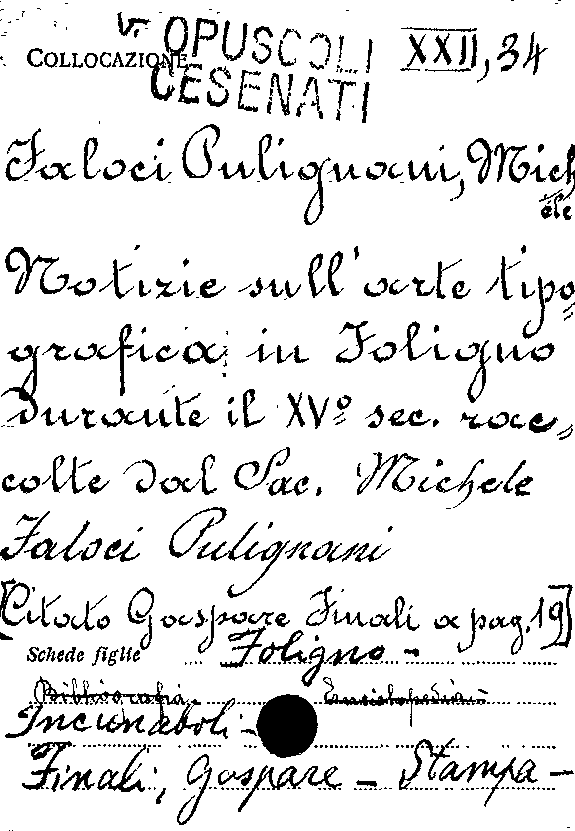 V. OPUSCOLI XXII, 34
COLLOCAZIONE
CESENATI
Faloci Pulignani, Mich
ele
Notizie sull'arte tipo=
grafica in Foligno
durante il XVº sec. rac=
colte dal Sac. Michele
Faloci Pulignani
[Citato Gaspare Finali a pag. 19]
Schede figlie Foligno -
Bibliografia - Enciclopedia -
Incunaboli -
Finali, Gaspare - Stampa -